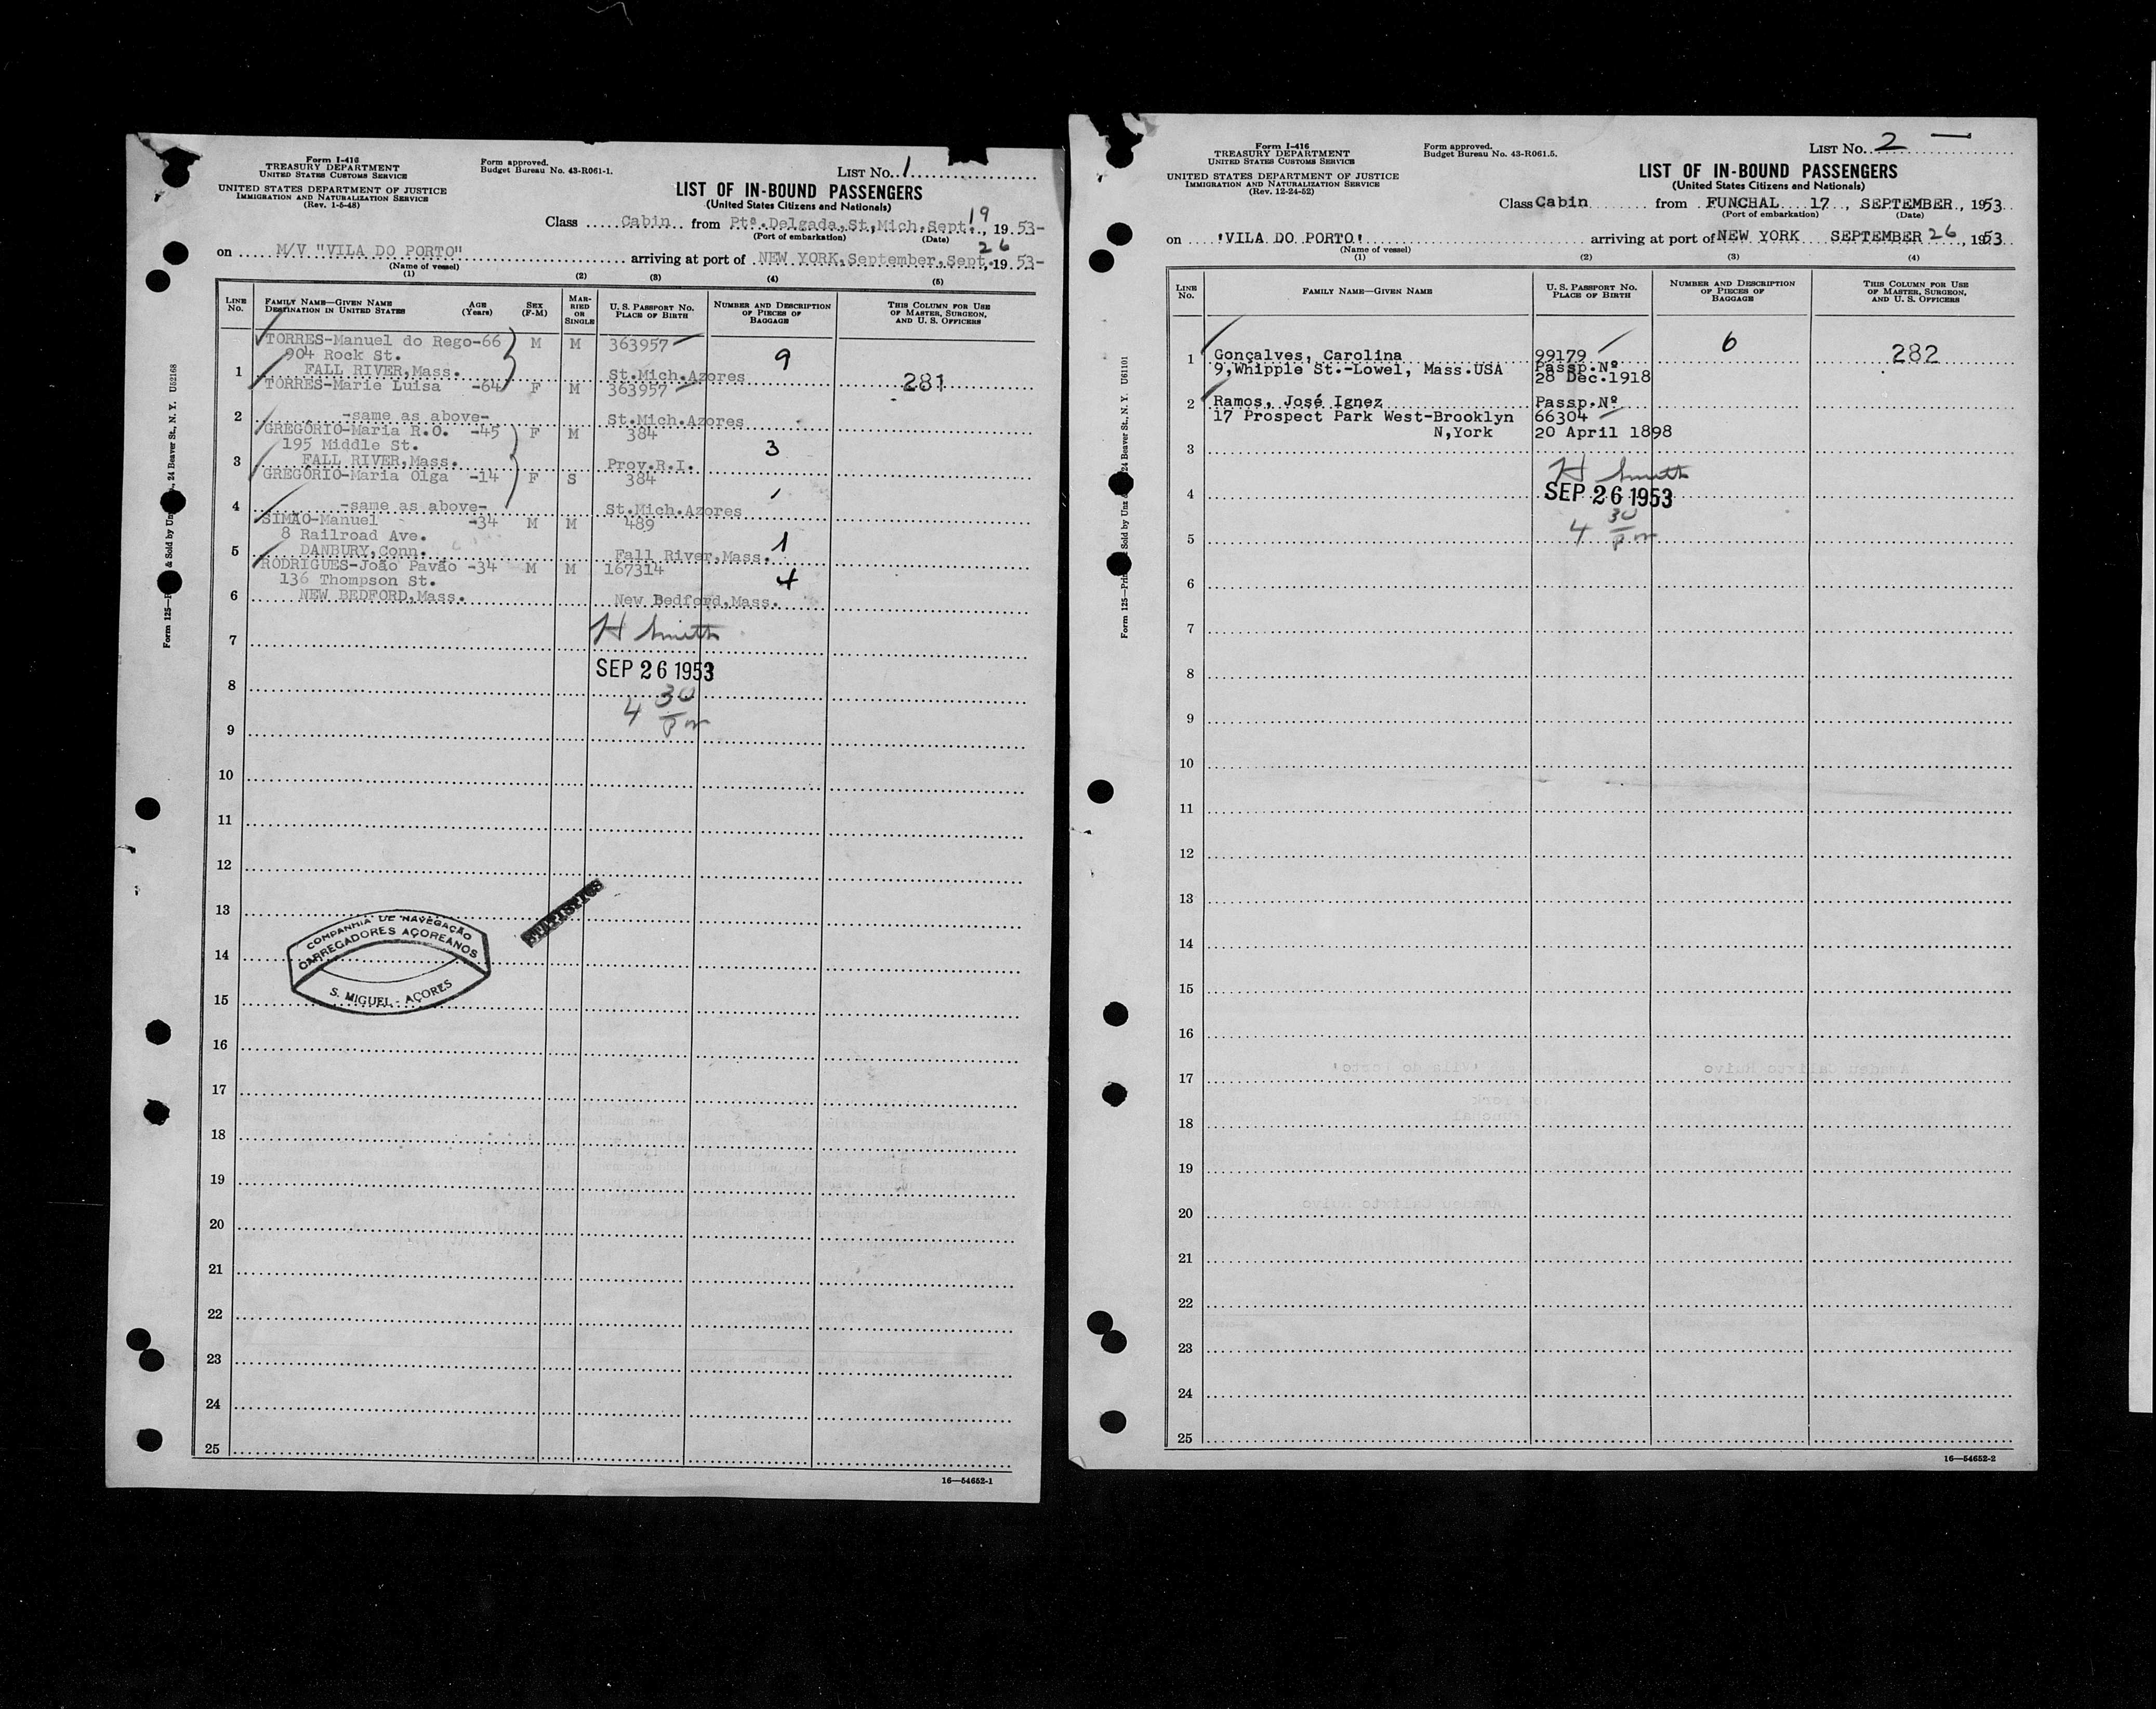 Form I-416
TREASURY DEPARTMENT
UNITED STATES CUSTOMS SERVICE
UNITED STATES DEPARTMENT OF JUSTICE
IMMIGRATION AND NATURALIZATION SERVICE
(Rev. 1-5-48)
Form approved.
Budget Bureau No. 43-R061-1.
LIST No. 1
LIST OF IN-BOUND PASSENGERS
(United States Citizens and Nationals)
Class Cabin from Ptª.Delgada,St,Mich.Sept. 19, 1953-
(Port of embarkation) (Date)
on M/V "VILA DO PORTO" arriving at port of NEW YORK,September,Sept. 26, 1953-
(Name of vessel)
(1) (2) (3) (4) (5)
LINE No. FAMILY NAME—GIVEN NAME DESTINATION IN UNITED STATES AGE (Years) SEX (F-M) MARRIED OR SINGLE U. S. PASSPORT No. PLACE OF BIRTH NUMBER AND DESCRIPTION OF PIECES OF BAGGAGE THIS COLUMN FOR USE OF MASTER, SURGEON, AND U. S. OFFICERS
TORRES-Manuel do Rego-66 M M 363957
904 Rock St. 9
1 FALL RIVER,Mass. St.Mich.Azores 281
TORRES-Marie Luisa -64 F M 363957
2 -same as above- St.Mich.Azores
GREGÓRIO-Maria R.O. -45 F M 384
195 Middle St. 3
3 FALL RIVER,Mass. Prov.R.I.
GREGÓRIO-Maria Olga -14 F S 384
4 -same as above- St.Mich.Azores
SIMÃO-Manuel -34 M M 489
8 Railroad Ave.
5 DANBURY,Conn. Fall River,Mass. 1
RODRIGUES-João Pavão -34 M M 167314 4
136 Thompson St.
6 NEW BEDFORD,Mass. New Bedford,Mass.
H Smith
7
SEP 26 1953
8
4 30 pm
9
10
11
12
13
14
15
16
17
18
19
20
21
22
23
24
25
STATISTICS
COMPANHIA DE NAVEGAÇÃO
CARREGADORES AÇOREANOS
S. MIGUEL - AÇORES
16—54652-1
Form I-416
TREASURY DEPARTMENT
UNITED STATES CUSTOMS SERVICE
UNITED STATES DEPARTMENT OF JUSTICE
IMMIGRATION AND NATURALIZATION SERVICE
(Rev. 12-24-52)
Form approved.
Budget Bureau No. 43-R061.5.
LIST No. 2
LIST OF IN-BOUND PASSENGERS
(United States Citizens and Nationals)
Class Cabin from FUNCHAL 17, SEPTEMBER, 1953
(Port of embarkation) (Date)
on 'VILA DO PORTO' arriving at port of NEW YORK SEPTEMBER 26, 1953
(Name of vessel)
(1) (2) (3) (4)
LINE No. FAMILY NAME—GIVEN NAME U. S. PASSPORT No. PLACE OF BIRTH NUMBER AND DESCRIPTION OF PIECES OF BAGGAGE THIS COLUMN FOR USE OF MASTER, SURGEON, AND U. S. OFFICERS
1 Gonçalves, Carolina 99179 6 282
9,Whipple St.-Lowel, Mass.USA Passp.Nº
28 Dec.1918
2 Ramos, José Ignez Passp.Nº
17 Prospect Park West-Brooklyn 66304
N,York 20 April 1898
3
H Smith
4 SEP 26 1953
4 30 pm
5
6
7
8
9
10
11
12
13
14
15
16
17
18
19
20
21
22
23
24
25
16—54652-2